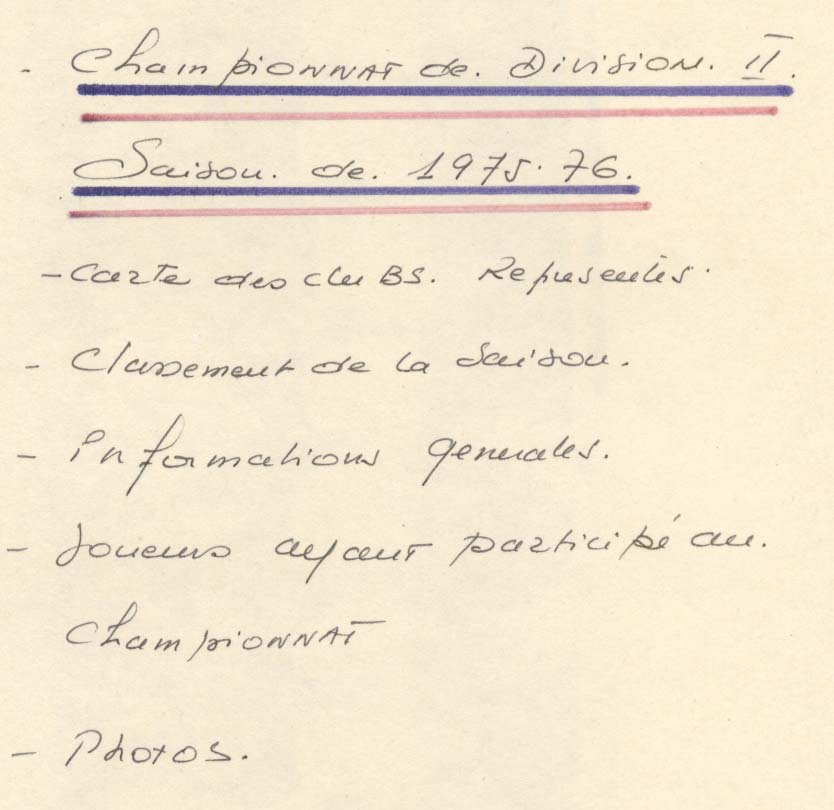 - Championnat de. Division. II.
Saison. de. 1975.76.
- Carte des cluBS. Representés.
- Classement de la Saison.
- informations generales.
- Joueurs ayant participé au.
Championnat
- Photos.